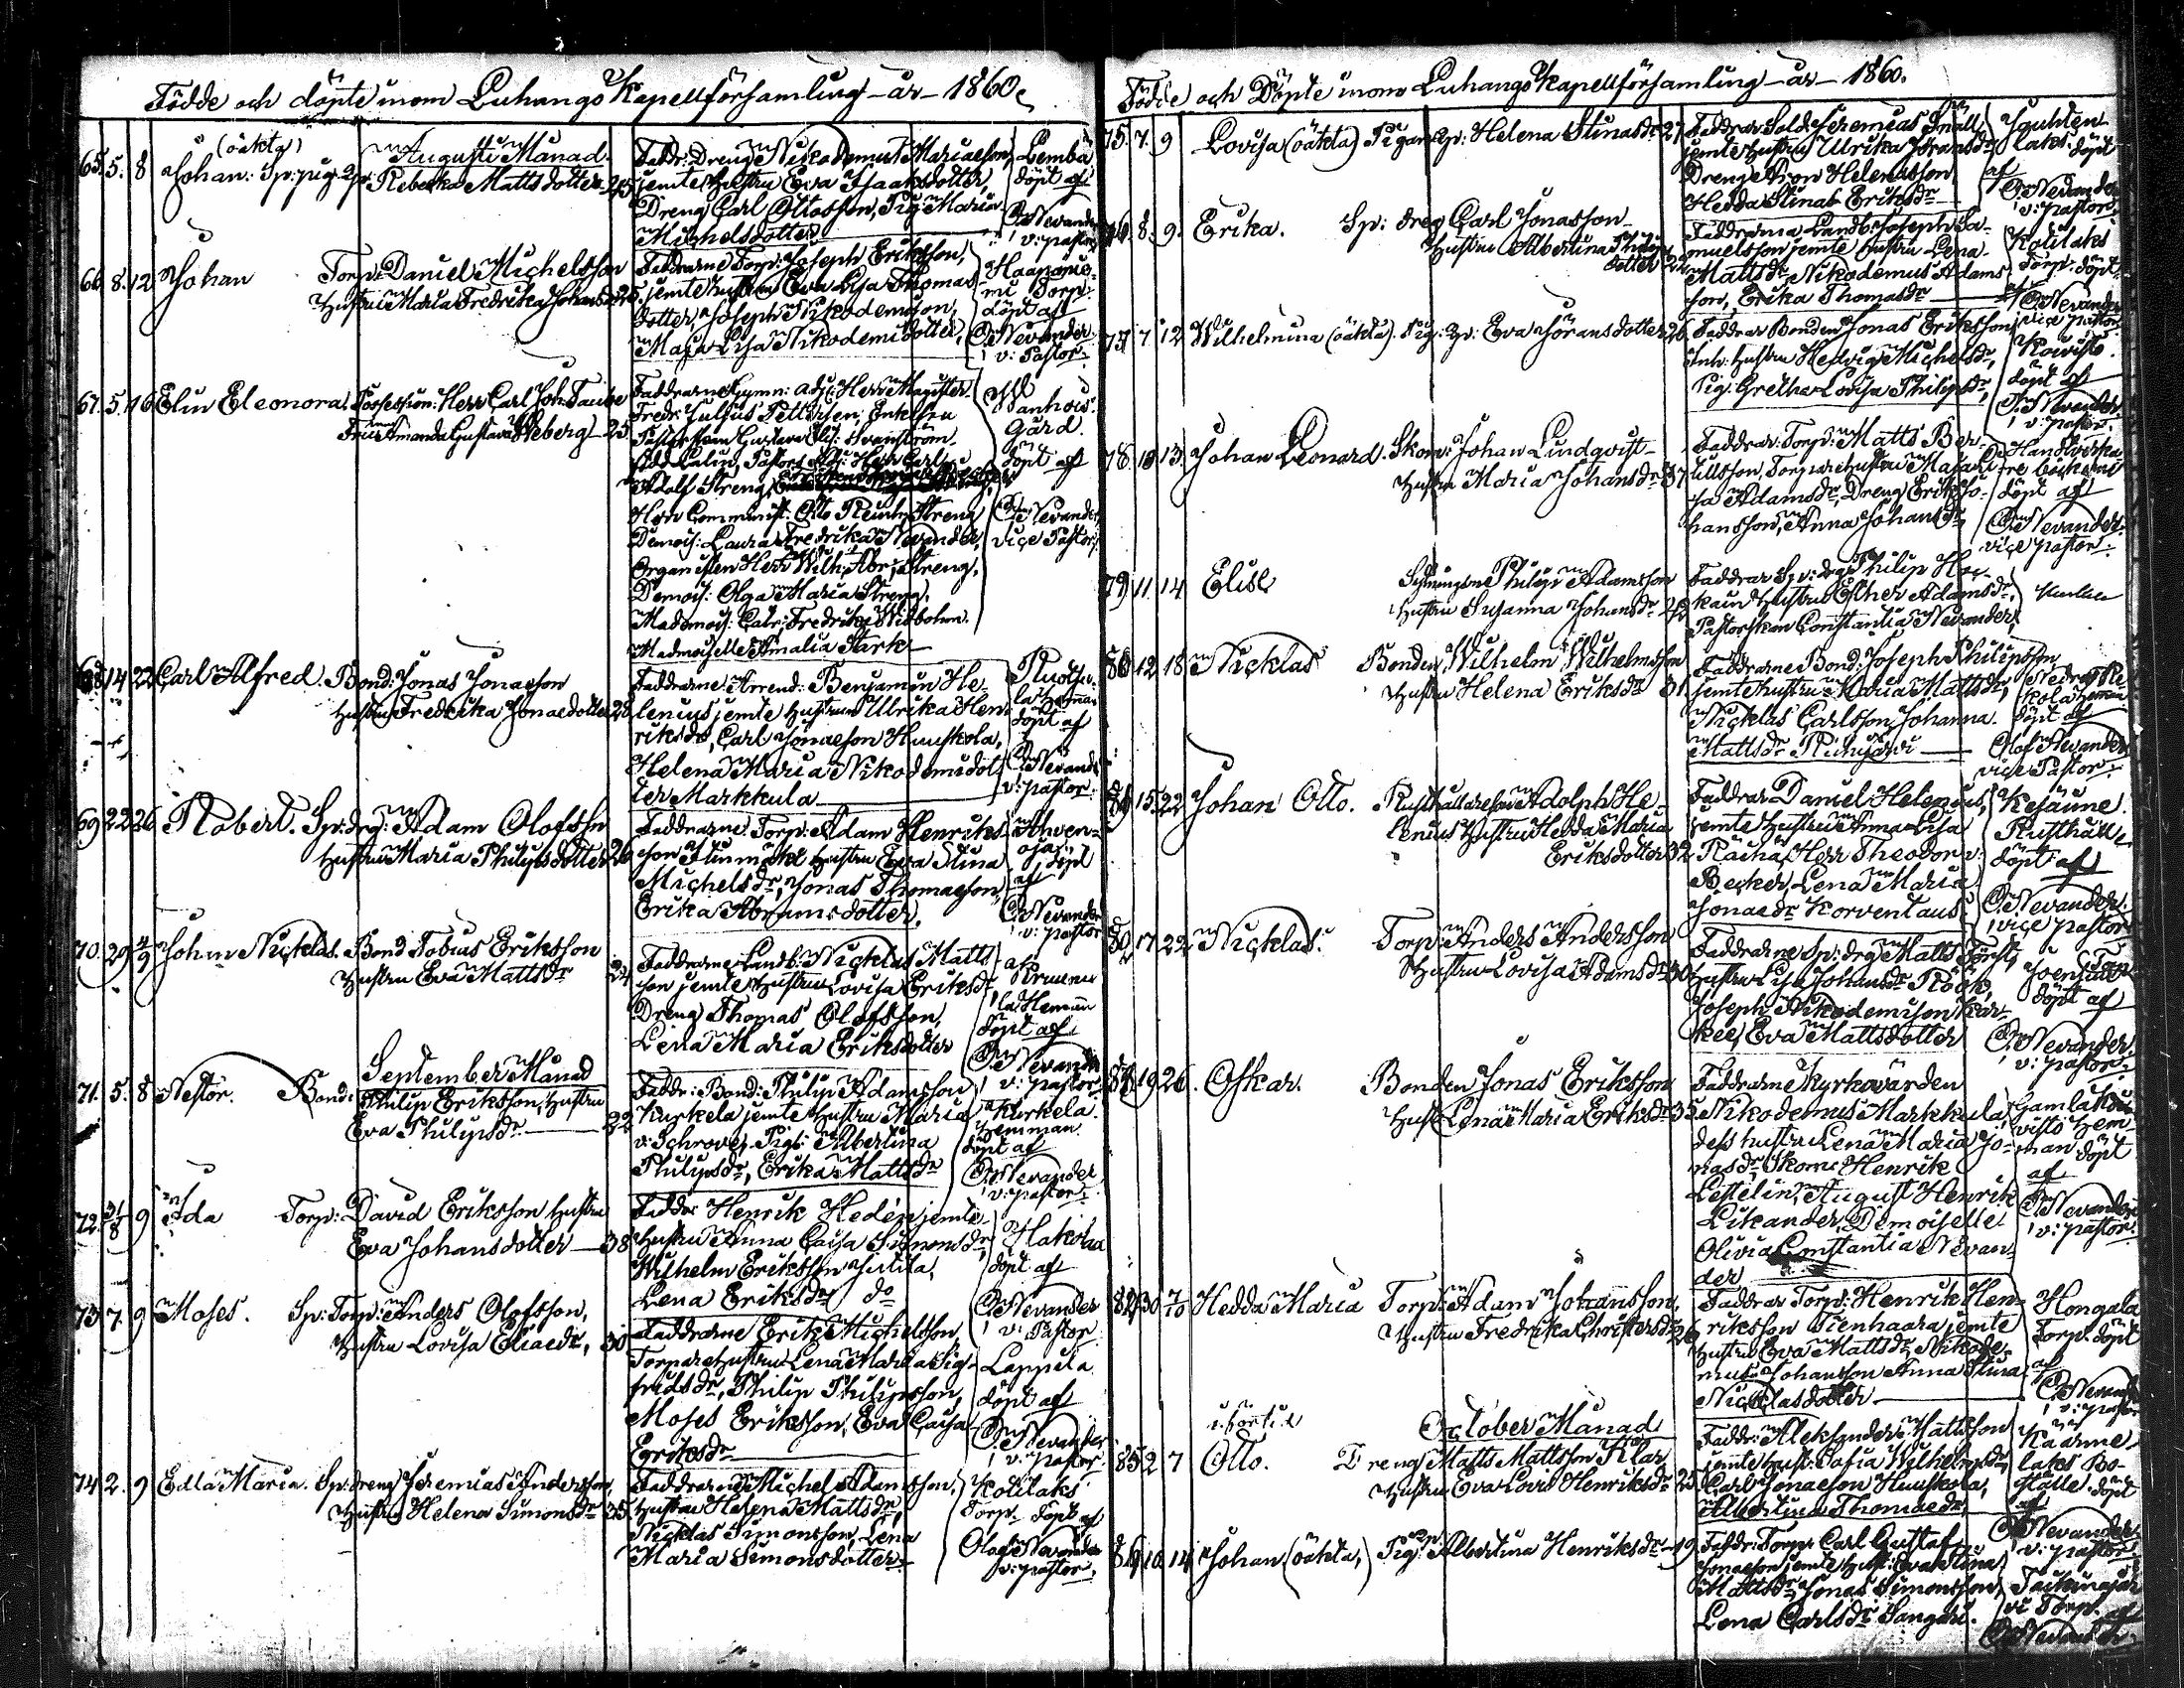 Födde och döpte inom Luhangs Kapellförsamling år 1860
Augusti Månad.
65. 5. 8 (oäkta) Johan. Sp: pig: Rebecka Matts dotter 25
Faddr: Dreng Nikodemus Mariaeson
jemte Hustru Eva Isaaksdotter,
Dreng Carl Ottosson, Pig: Maria
Michelsdotter
Lemba
döpt af
O. Nevander
v: pastor
66. 8. 12 Johan Torp: Daniel Michelsson
Hustru Maria Fredrika Johansdr
Faddrarne Torp: Joseph Eriksson,
jemte hustru Eva Lisa Thomas
dotter, Joseph Nikodemisson,
Maja Lisa Nikodemi dotter,
Torp.
döpt af
O. Nevander
v: Pastor
67. 5. 16 Elin Eleonora. Possession: Herr Carl Joh: Taube
Fru Amanda Gustava Weberg 25
Faddrarne Gymn: adj: Herr Magister
Fredr: Julius Pettersen, Enkefru
Pastorskan Gustava Elis: Svanström
Pastors Adj: Herr Carl
Adolf Streng,
Herr Commminist: Otto Reinh: Streng
Demois: Laura Fredrika Nevander,
Organisten Herr Wilh: Abr: Streng,
Demois: Olga Maria Streng,
Mademois: Cath: Fredrika Widbohm.
Madmoiselle Amalia Stark
Wanhois
Gård
döpt af
O. Nevander
vice Pastor
68. 14 22 Carl Alfred. Bond: Jonas Jonaeson
Hustru Fredrika Jonaedotter 28
Faddrarne Arrend: Benjamin He-
lenius jemte hustru Ulrika Hen-
riksdr, Carl Jonaeson Huuskola,
Helena Maria Nikodemidot-
ter Markkula
döpt af
O. Nevander
v: pastor
69 22 26 Robert. Sp: drg: Adam Olofssn
Hustru Maria Philipsdotter 26
Faddrarne Torp: Adam Henriks-
son hustru Eva Stina
Michelsdr, Jonas Thomaeson,
Erika Abramsdotter,
Ahven-
oja
döpt
af
O. Nevander
v: pastor
70. 29 4/9 Johan Nicklas. Bond Tobias Eriksson
Hustru Eva Mattsdr 24
Faddrarne Landb: Nicklas Matts
son jemte hustru Lovisa Eriksdr
Dreng Thomas Olofsson,
Lena Maria Eriksdotter
Heman
döpt af
O. Nevander
v: pastor
September Månad
71. 5. 8 Nestor. Bond: Philip Eriksson, Hustru
Eva Philipsdr 22
Faddr: Bond: Philip Adamsson
Kurkela jemte hustru Maria
v: Schrover, Pig: Albertina
Philipsdr, Erika Mattsdr
Kurkela
Hemman
döpt af
O. Nevander
v: pastor
72. 31/8 9 Ida Torp: David Eriksson hustru
Eva Johansdotter 38
Faddr: Henrik Hedén jemte
hustru Anna Caisa Simonsdr
Wilhelm Eriksson Jutila,
Lena Eriksdr do
Hakolaa
döpt af
O. Nevander
v: Pastor
73 7. 9 Moses. Sp: Torp: Anders Olofsson,
Hustru Lovisa Eliaedr, 30
Faddrarne Erik Michelsson,
Torpare hustru Lena Maria Sig-
fridsdr, Philip Philipsson,
Moses Eriksson, Eva Caisa
Eriksdr
Lappela
döpt af
O. Nevander
v: pastor
74 2. 9 Edla Maria. Sp: dreng Jeremias Andersson,
Hustru Helena Simonsdr 35
Faddrarne Michel Adamsson,
hustru Helena Mattsdr,
Nicklas Simonsson, Lena
Maria Simonsdotter
Kotilaks
Torp. döpt af
Olof Nevander
v: pastor
Födde och Döpte inom Luhangs Kapellförsamling år 1860.
75. 7. 9 Lovisa (oäkta) Pigan Sp: Helena Stinasdr 27
Faddrar Sold: Jeremias Snäll
jemte hustru Ulrika Göransdr
Dreng Aron Helenasson,
Hedda Stina Eriksdr
döpt
af
O. Nevander
v: pastor
76. 8. 9. Erika. Sp: dreg Carl Jonasson
Hustru Albertina Philips
dotter
Faddrarna Landb: Joseph Sa-
muelsson jemte hustru Lena
Mattsdr Nikodemus Adams
son, Erika Thomasdr
Kotilaks
Torp. döpt
af
O. Nevander
vice pastor
77 7 12 Wilhelmina (oäkta). Pig: Eva Göransdotter 26
Faddrar Bonden Jonas Eriksson,
hustru Hedvig Michelsdr,
Pig: Gretha Lovisa Philipsdr,
Koivisto
döpt af
O. Nevander
v: pastor
78. 13. Johan Leonard. Skom: Johan Lindqvist
Hustru Maria Johansdr 37
Faddrar: Torp: Matts Ber-
tillsson, Torpare hustru Maja Li-
sa Adamsdr, Dreng Erik Jo-
hansson, Anna Johansdr
döpt af
O. Nevander
vice pastor
79 11. 14 Elise Philip Adamsson
Hustru Susanna Johansdr
Faddrar Sp: drg Philip
hustru Esther Adamsdr,
Pastorskan Constantia Nevander
80 12 18 Nicklas Bonden Wilhelm Wilhelmsson
Hustru Helena Eriksdr 31
Faddrarne Bond: Joseph Philipsson
jemte hustru Maria Mattsdr,
Nicklas Carlsson, Johanna
Mattsdr
döpt af
Olof Nevander
vice Pastor
15. 22 Johan Otto. Rusthållaresn Adolph He-
lenius Hustru Hedda Maria
Eriksdotter 32
Faddrar Daniel Helenius,
jemte hustru Anna Lisa
Räihä, Herr Theodor v:
Becker, Lena Maria
Jonaedr Korventaus
Rusthåll
döpt af
O. Nevander
vice pastor
17. 22 Nicklas. Torp Anders Andersson
Hustru Lovisa Adamsdr 30
Faddrarne Sp: drg Matts
hustru Lisa Johansdr
Joseph Nikodemison
Eva Mattsdotter
döpt af
O. Nevander
v: pastor
19 26. Oskar. Bonden Jonas Eriksson
Hust: Lena Maria Eriksdr 35
Faddrarne Kyrkovärden
Nikodemus Markkula,
dess hustru Lena Maria Jo-
nasdr Skom: Henrik
Lestelin, August Henrik
Likander, Demoiselle
Olivia Constantia Nevan-
der
Gamla Koi-
visto Hem-
man döpt
af
O. Nevander
v: pastor
30 7/10 Hedda Maria Torp: Adam Johansson,
Hustru Fredrika Christersdr 26
Faddrar Torp: Henrik Hen-
riksson Tienhaara jemte
hustru Eva Mattsdr, Nikode-
mus Johansson Anna Stina
Nicklasdotter
Hongala
Torp. döpt
af
O. Nevander
v: pastor
October Månad
85 2 7 Otto. Dreng Matts Mattsson
Hustru Eva Lovis Henriksdr 25
Faddr: Aleksander Mattsson
jemte hust: Caisa Wilhelmsdr,
Carl Jonaeson Huuskola,
Albertina Thomaedr,
döpt
af
O. Nevander
v: pastor
86 10 14 Johan (oäkta,) Pig: Albertina Henriksdr 19
Faddr: Torp: Carl Gustaf
Jonaeson jemte hust: Eva Stina
Mattsdr Jonas Simonsson,
Lena Carlsdr Sangari.
Torp. af
O. Nevander